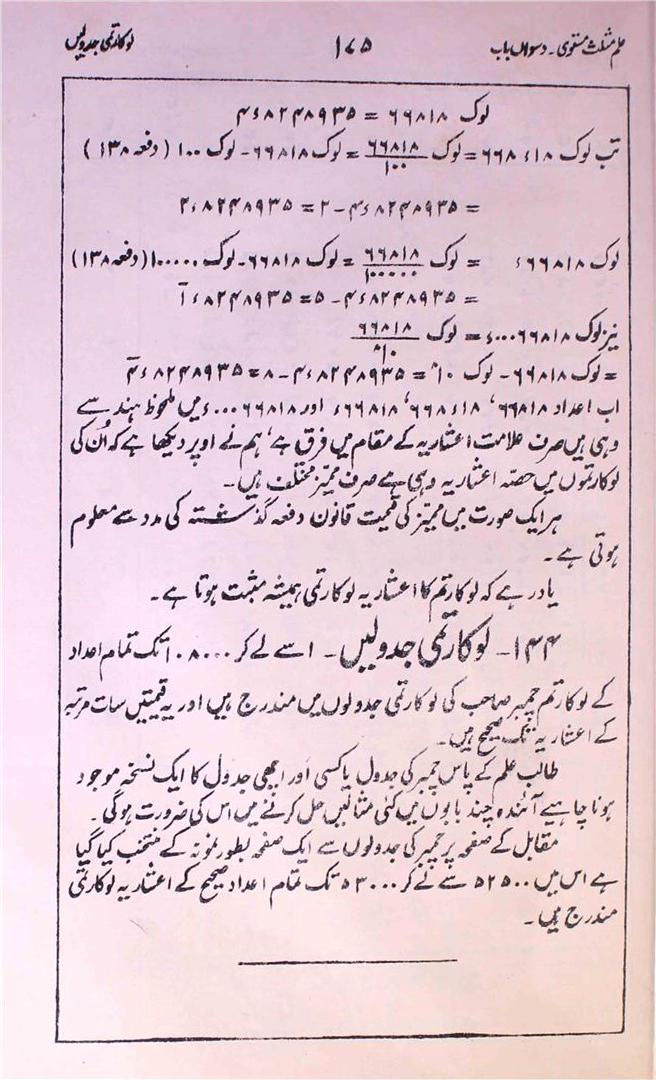 علم مثلث مستوی ۔ دسواں باب ۱۷۵ لوکارتمی جدولیں
لوک ۶۶۸۱۸ = ۴ء۸۲۴۸۹۳۵
تب لوک ۶۶۸ء۱۸ = لوک ۶۶۸۱۸/۱۰۰ = لوک ۶۶۸۱۸ - لوک ۱۰۰ (دفعہ ۱۳۸)
= ۴ء۸۲۴۸۹۳۵ - ۲ = ۲ء۸۲۴۸۹۳۵
لوک ء۶۶۸۱۸ = لوک ۶۶۸۱۸/۱۰۰۰۰۰ = لوک ۶۶۸۱۸ - لوک ۱۰۰۰۰۰ (دفعہ ۱۳۸)
= ۴ء۸۲۴۸۹۳۵ - ۵ = ۱̄ء۸۲۴۸۹۳۵
نیز لوک ء۰۰۰۶۶۸۱۸ = لوک ۶۶۸۱۸/۱۰^۸
= لوک ۶۶۸۱۸ - لوک ۱۰^۸ = ۴ء۸۲۴۸۹۳۵ - ۸ = ۴̄ء۸۲۴۸۹۳۵
اب اعداد ۶۶۸۱۸، ۶۶۸ء۱۸، ء۶۶۸۱۸ اور ء۰۰۰۶۶۸۱۸ میں ملحوظ ہند سے
وہی ہیں صرف علامت اعشاریہ کے مقام میں فرق ہے، ہم نے اوپر دیکھا ہے کہ اُن کی
لوکارتموں میں حصہ اعشاریہ وہی ہے صرف ممیّز مختلف ہیں۔
ہر ایک صورت میں ممیّز کی قیمت قانون دفعہ گذشتہ کی مدد سے معلوم
ہوتی ہے۔
یاد رہے کہ لوکارتم کا اعشاریہ لوکارتمی ہمیشہ مثبت ہوتا ہے۔
۱۴۴۔ لوکارتمی جدولیں۔ ا سے لے کر ۱۰۸۰۰۰ تک تمام اعداد
کے لوکارتم چمبر صاحب کی لوکارتمی جدولوں میں مندرج ہیں اور یہ قیمتیں سات مرتبہ
کے اعشاریہ تک صحیح ہیں۔
طالب علم کے پاس چمبر کی جدول یا کسی اور اچھی جدول کا ایک نسخہ موجود
ہونا چاہیے آئندہ چند بابوں میں کئی مثالیں حل کرنے میں اس کی ضرورت ہوگی۔
مقابل کے صفحہ پر چمبر کی جدولوں سے ایک صفحہ بطور نمونہ کے منتخب کیا گیا
ہے اس میں ۵۲۵۰۰ سے لے کر ۵۳۰۰۰ تک تمام اعداد صحیح کے اعشاریہ لوکارتمی
مندرج ہیں۔